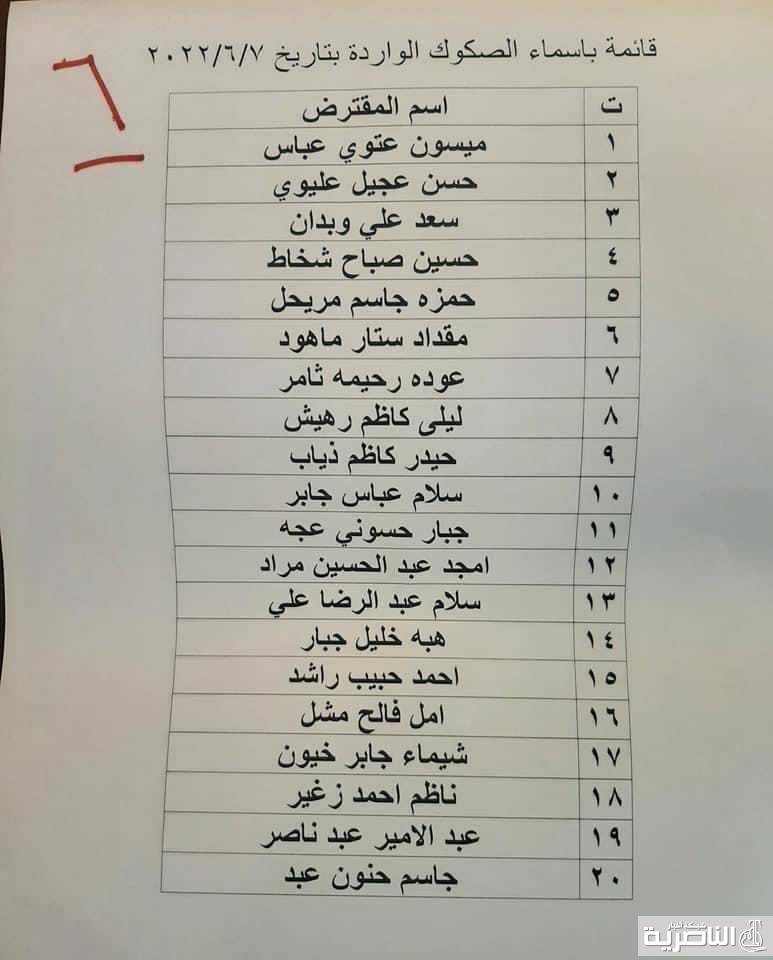 قائمة باسماء الصكوك الواردة بتاريخ ٢٠٢٢/٦/٧
٦
ت اسم المقترض
١ ميسون عتوي عباس
٢ حسن عجيل عليوي
٣ سعد علي وبدان
٤ حسين صباح شخاط
٥ حمزه جاسم مريحل
٦ مقداد ستار ماهود
٧ عوده رحيمه ثامر
٨ ليلى كاظم رهيش
٩ حيدر كاظم ذياب
١٠ سلام عباس جابر
١١ جبار حسوني عجه
١٢ امجد عبد الحسين مراد
١٣ سلام عبد الرضا علي
١٤ هبه خليل جبار
١٥ احمد حبيب راشد
١٦ امل فالح مشل
١٧ شيماء جابر خيون
١٨ ناظم احمد زغير
١٩ عبد الامير عبد ناصر
٢٠ جاسم حنون عبد
شبكة اخبار
الناصرية